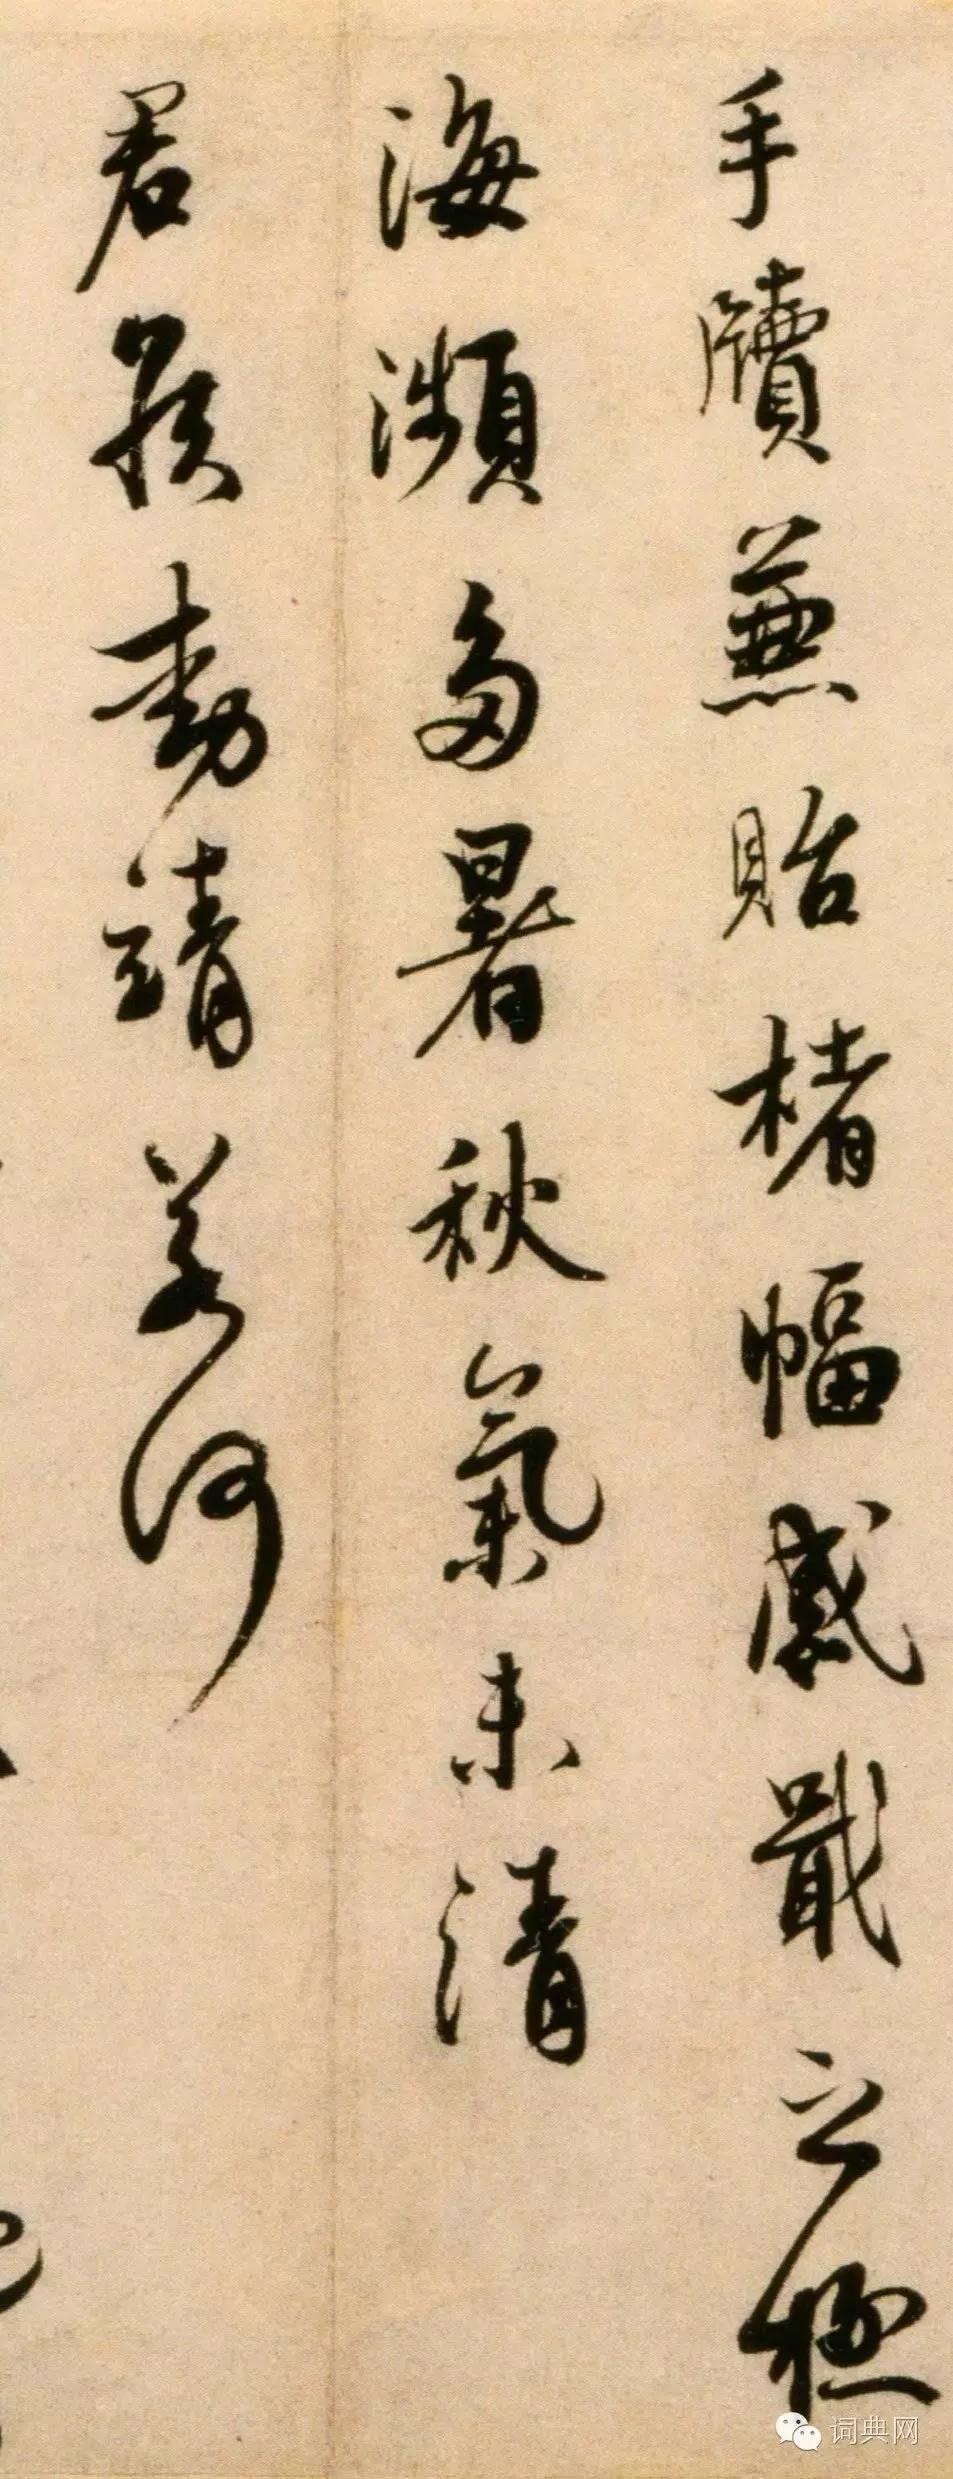 手牘兼貽楮幅感戢之極
海瀕多暑秋氣未清
君侯動靖若何
词典网